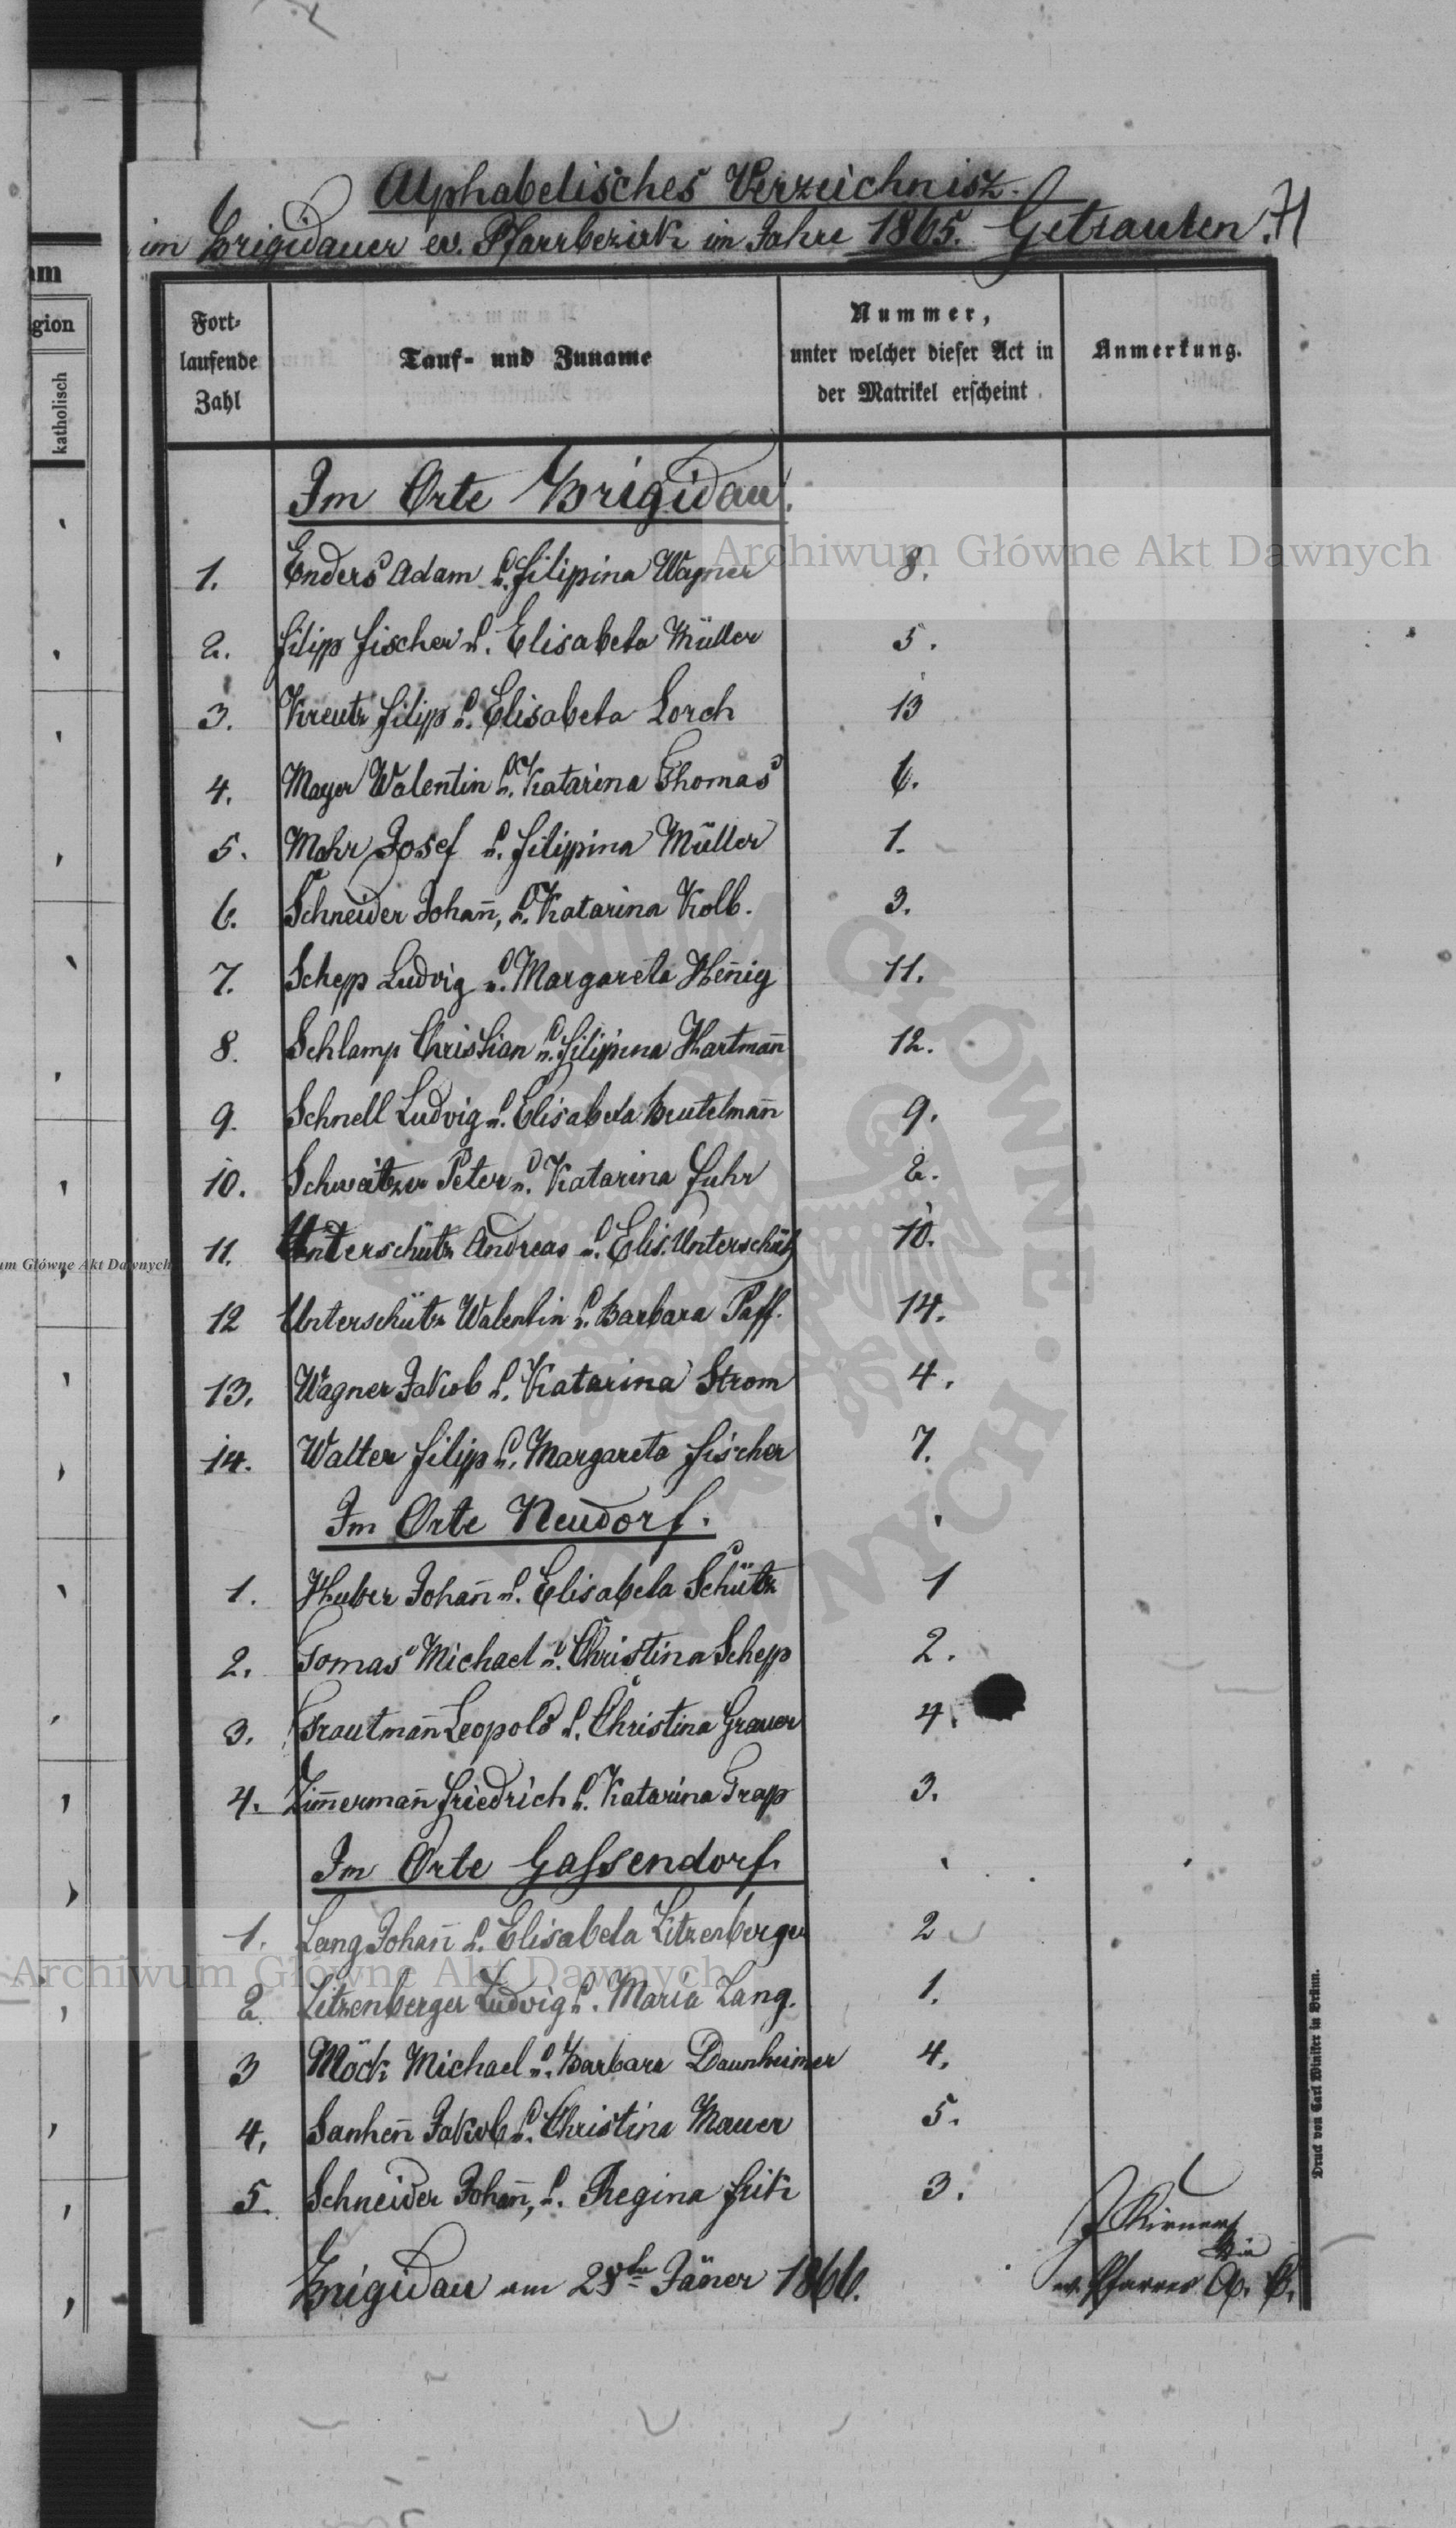 Alphabetisches Verzeichnisz.
im Brigidauer ev. Pfarrbezirk im Jahre 1865. Getrauten. 71
Fort-
laufende
Zahl
Tauf- und Zuname
Nummer,
unter welcher dieser Act in
der Matrikel erscheint
Anmerkung.
Im Orte Brigidau.
1. Enders Adam u. Filipina Wagner 8.
2. Filipp Fischer u. Elisabeta Müller 5.
3. Kreutz Filipp u. Elisabeta Lorch 13
4. Mayer Walentin u. Katarina Thomas 6.
5. Mohr Josef u. Filippina Müller 1.
6. Schneider Johan̄, u. Katarina Kolb. 3.
7. Schepp Ludvig u. Margareta Hen̄ig 11.
8. Schlamp Christian u. Filippina Hartman̄ 12.
9. Schnell Ludvig u. Elisabeta Beutelman̄ 9.
10. Schweitzer Peter u. Katarina Fuhr 2.
11. Unterschütz Andreas u. Elis. Unterschütz 10.
12 Unterschütz Walentin u. Barbara Paff. 14.
13. Wagner Jakob u. Katarina Strom 4.
14. Walter Filipp u. Margareta Fischer 7.
Im Orte Neudorf.
1. Huber Johan̄ u. Elisabeta Schütz 1
2. Tomas Michael u. Christina Schepp 2.
3. Trautman̄ Leopold u. Christina Grauer 4.
4. Zim̄erman̄ Friedrich u. Katarina Trap 3.
Im Orte Gassendorf.
1. Lang Johan̄ u. Elisabeta Litzenberger 2
2 Litzenberger Ludvig u. Maria Lang. 1.
3 Möck Michael u. Barbara Daunheimer 4.
4. Sanhen̄ Jakob u. Christina Mauer 5.
5. Schneider Johan̄, u. Regina Frik 3.
Brigidau am 28ten Jäner 1866.
ev. Pfarrer A. C.
Druck von Carl Winiker in Brünn.
gion
katholisch
Archiwum Główne Akt Dawnych
um Główne Akt Dawnych
Archiwum Główne Akt Dawnych